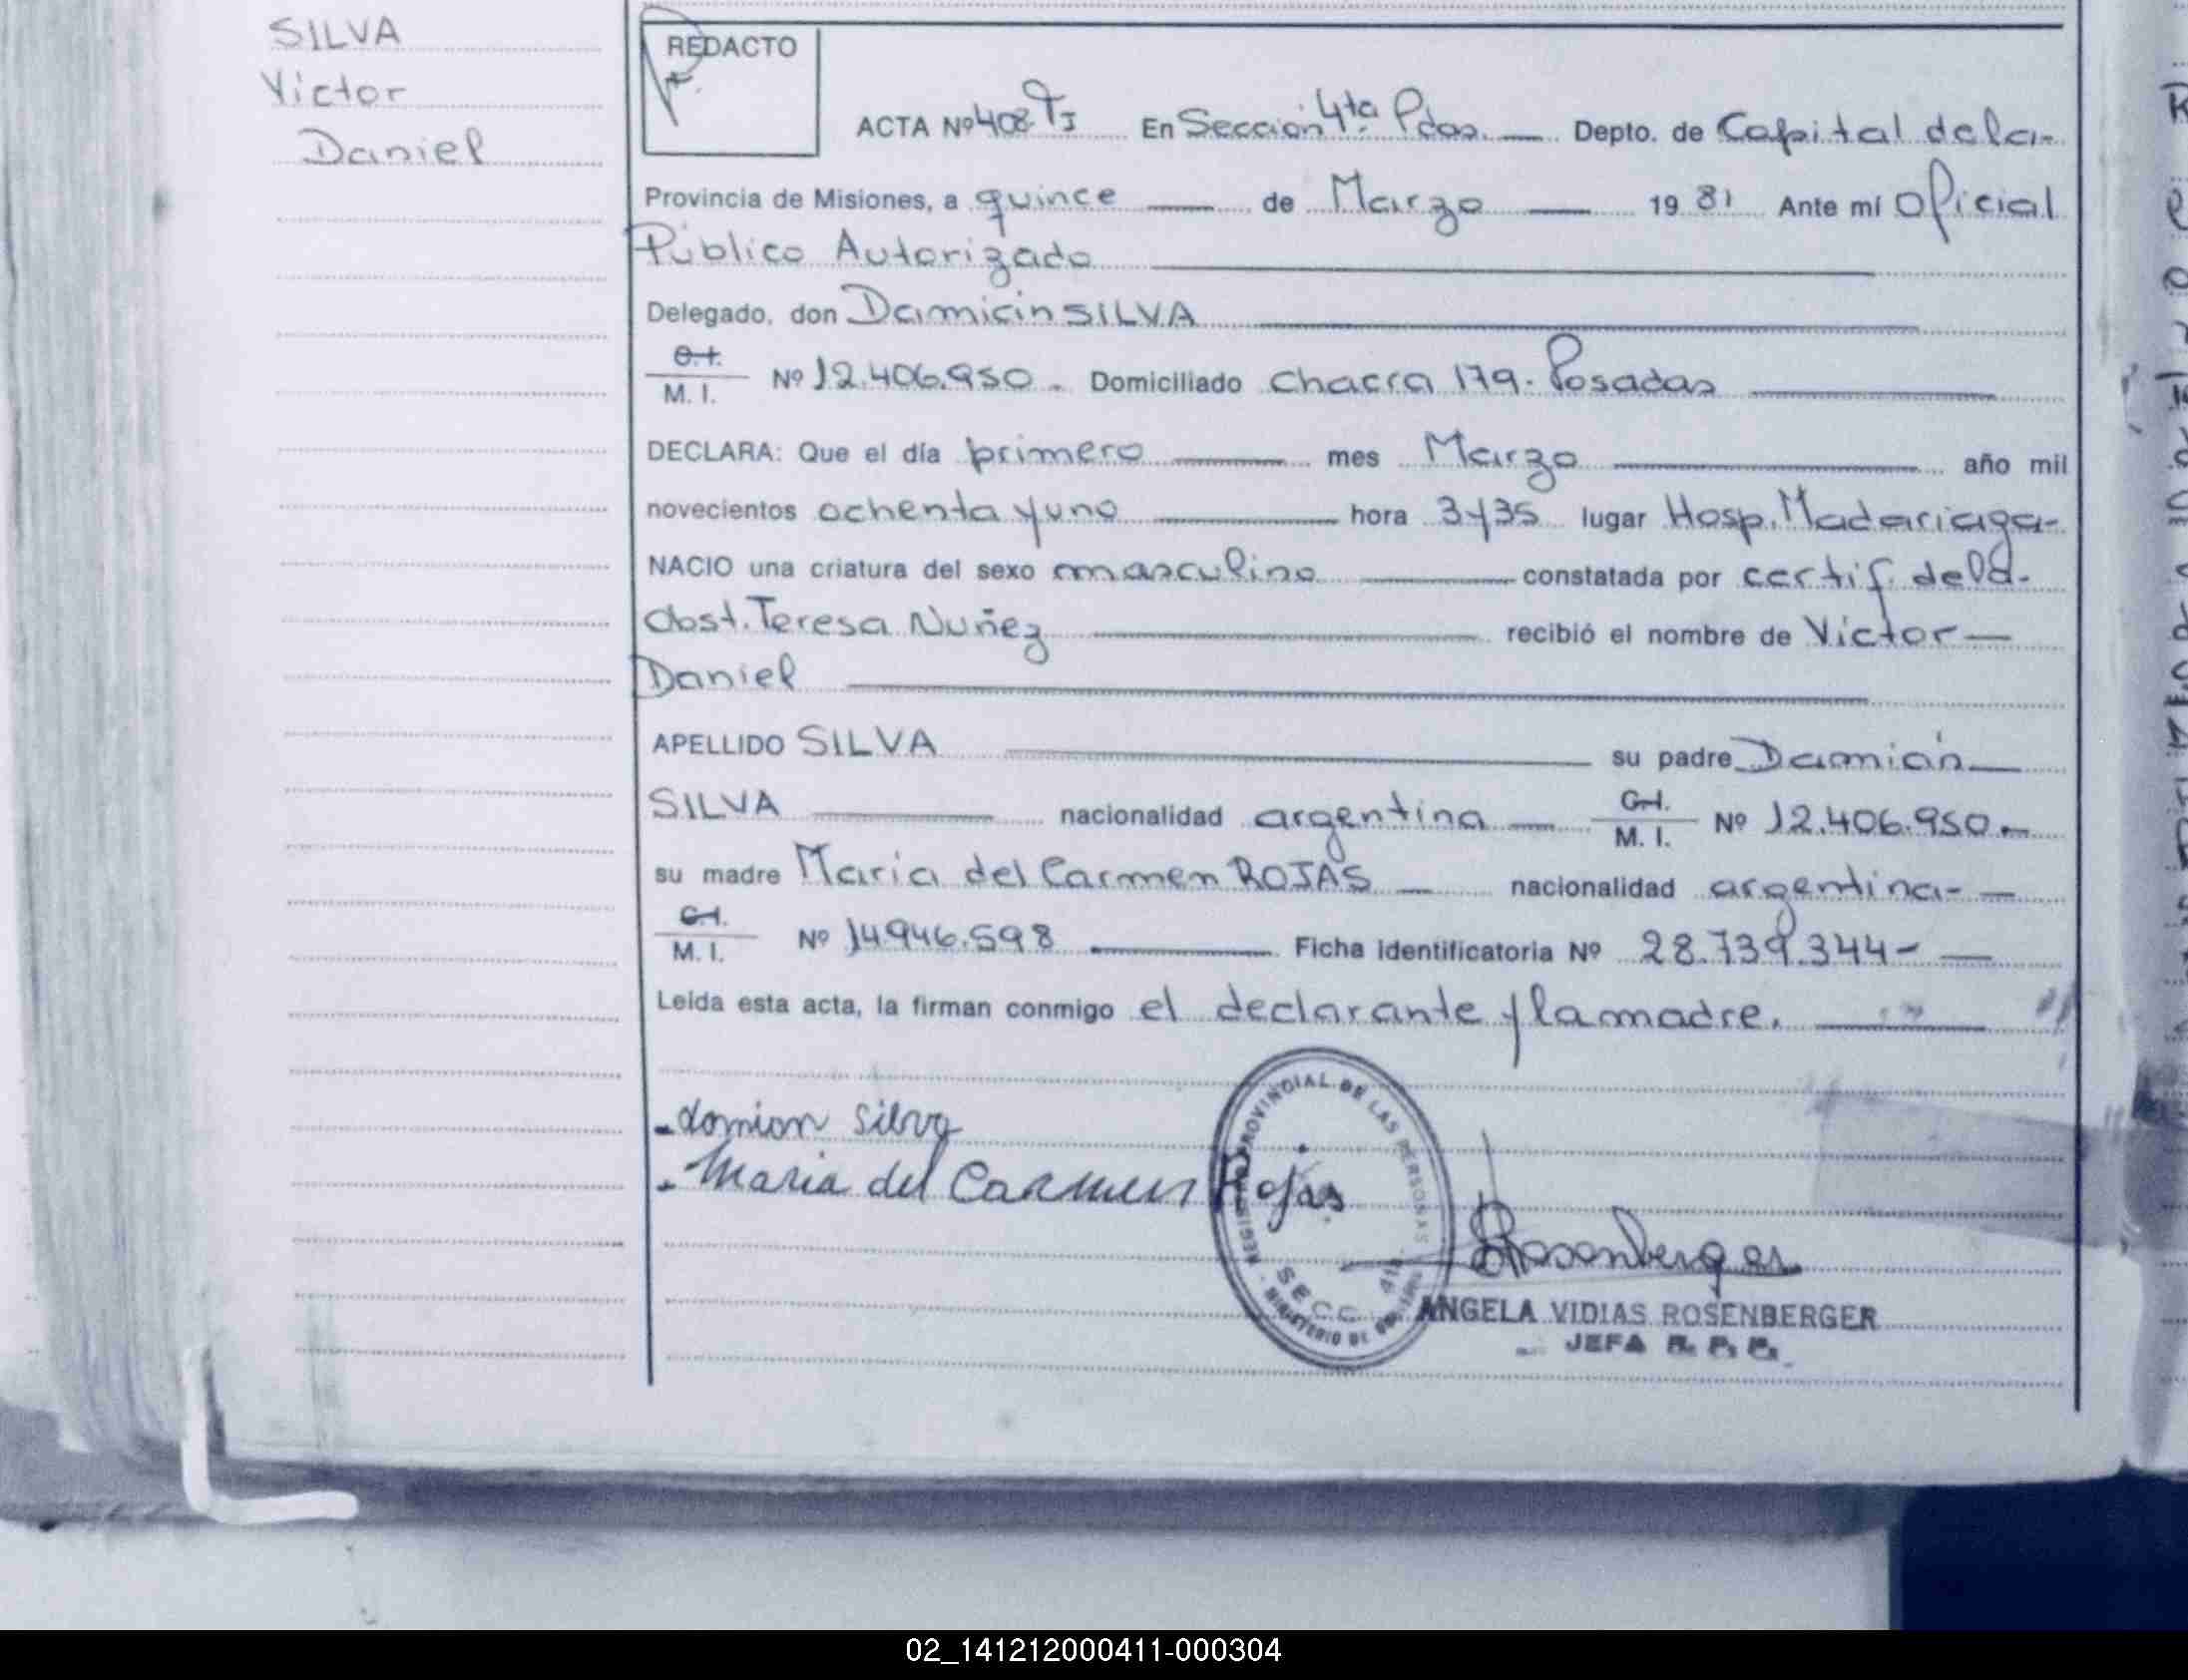 SILVA
Victor
Daniel
REDACTO
ACTA Nº 408 TI En Sección 4ta Pdas. Depto. de Capital de la-
Provincia de Misiones, a quince de Marzo 19 81 Ante mí Oficial
Público Autorizado
Delegado, don Damián SILVA
C.I. M. I. Nº 12.406.950. Domiciliado Chacra 179. Posadas
DECLARA: Que el día primero mes Marzo año mil
novecientos ochenta y uno hora 3y35 lugar Hosp. Madariaga-
NACIO una criatura del sexo masculino constatada por certif. de la-
Obst. Teresa Nuñez recibió el nombre de Victor
Daniel
APELLIDO SILVA su padre Damián
SILVA nacionalidad argentina C.I. M. I. Nº 12.406.950.-
su madre María del Carmen ROJAS nacionalidad argentina-
C.I. M. I. Nº 14946.598 Ficha Identificatoria Nº 28.739.344-
Leída esta acta, la firman conmigo el declarante y la madre.
damian silva
Maria del Carmen Rojas
REGISTRO PROVINCIAL DE LAS PERSONAS
SECC. 4ta
MINISTERIO DE
Rosenberger
ANGELA VIDIAS ROSENBERGER
JEFA R. P. P.
02_141212000411-000304